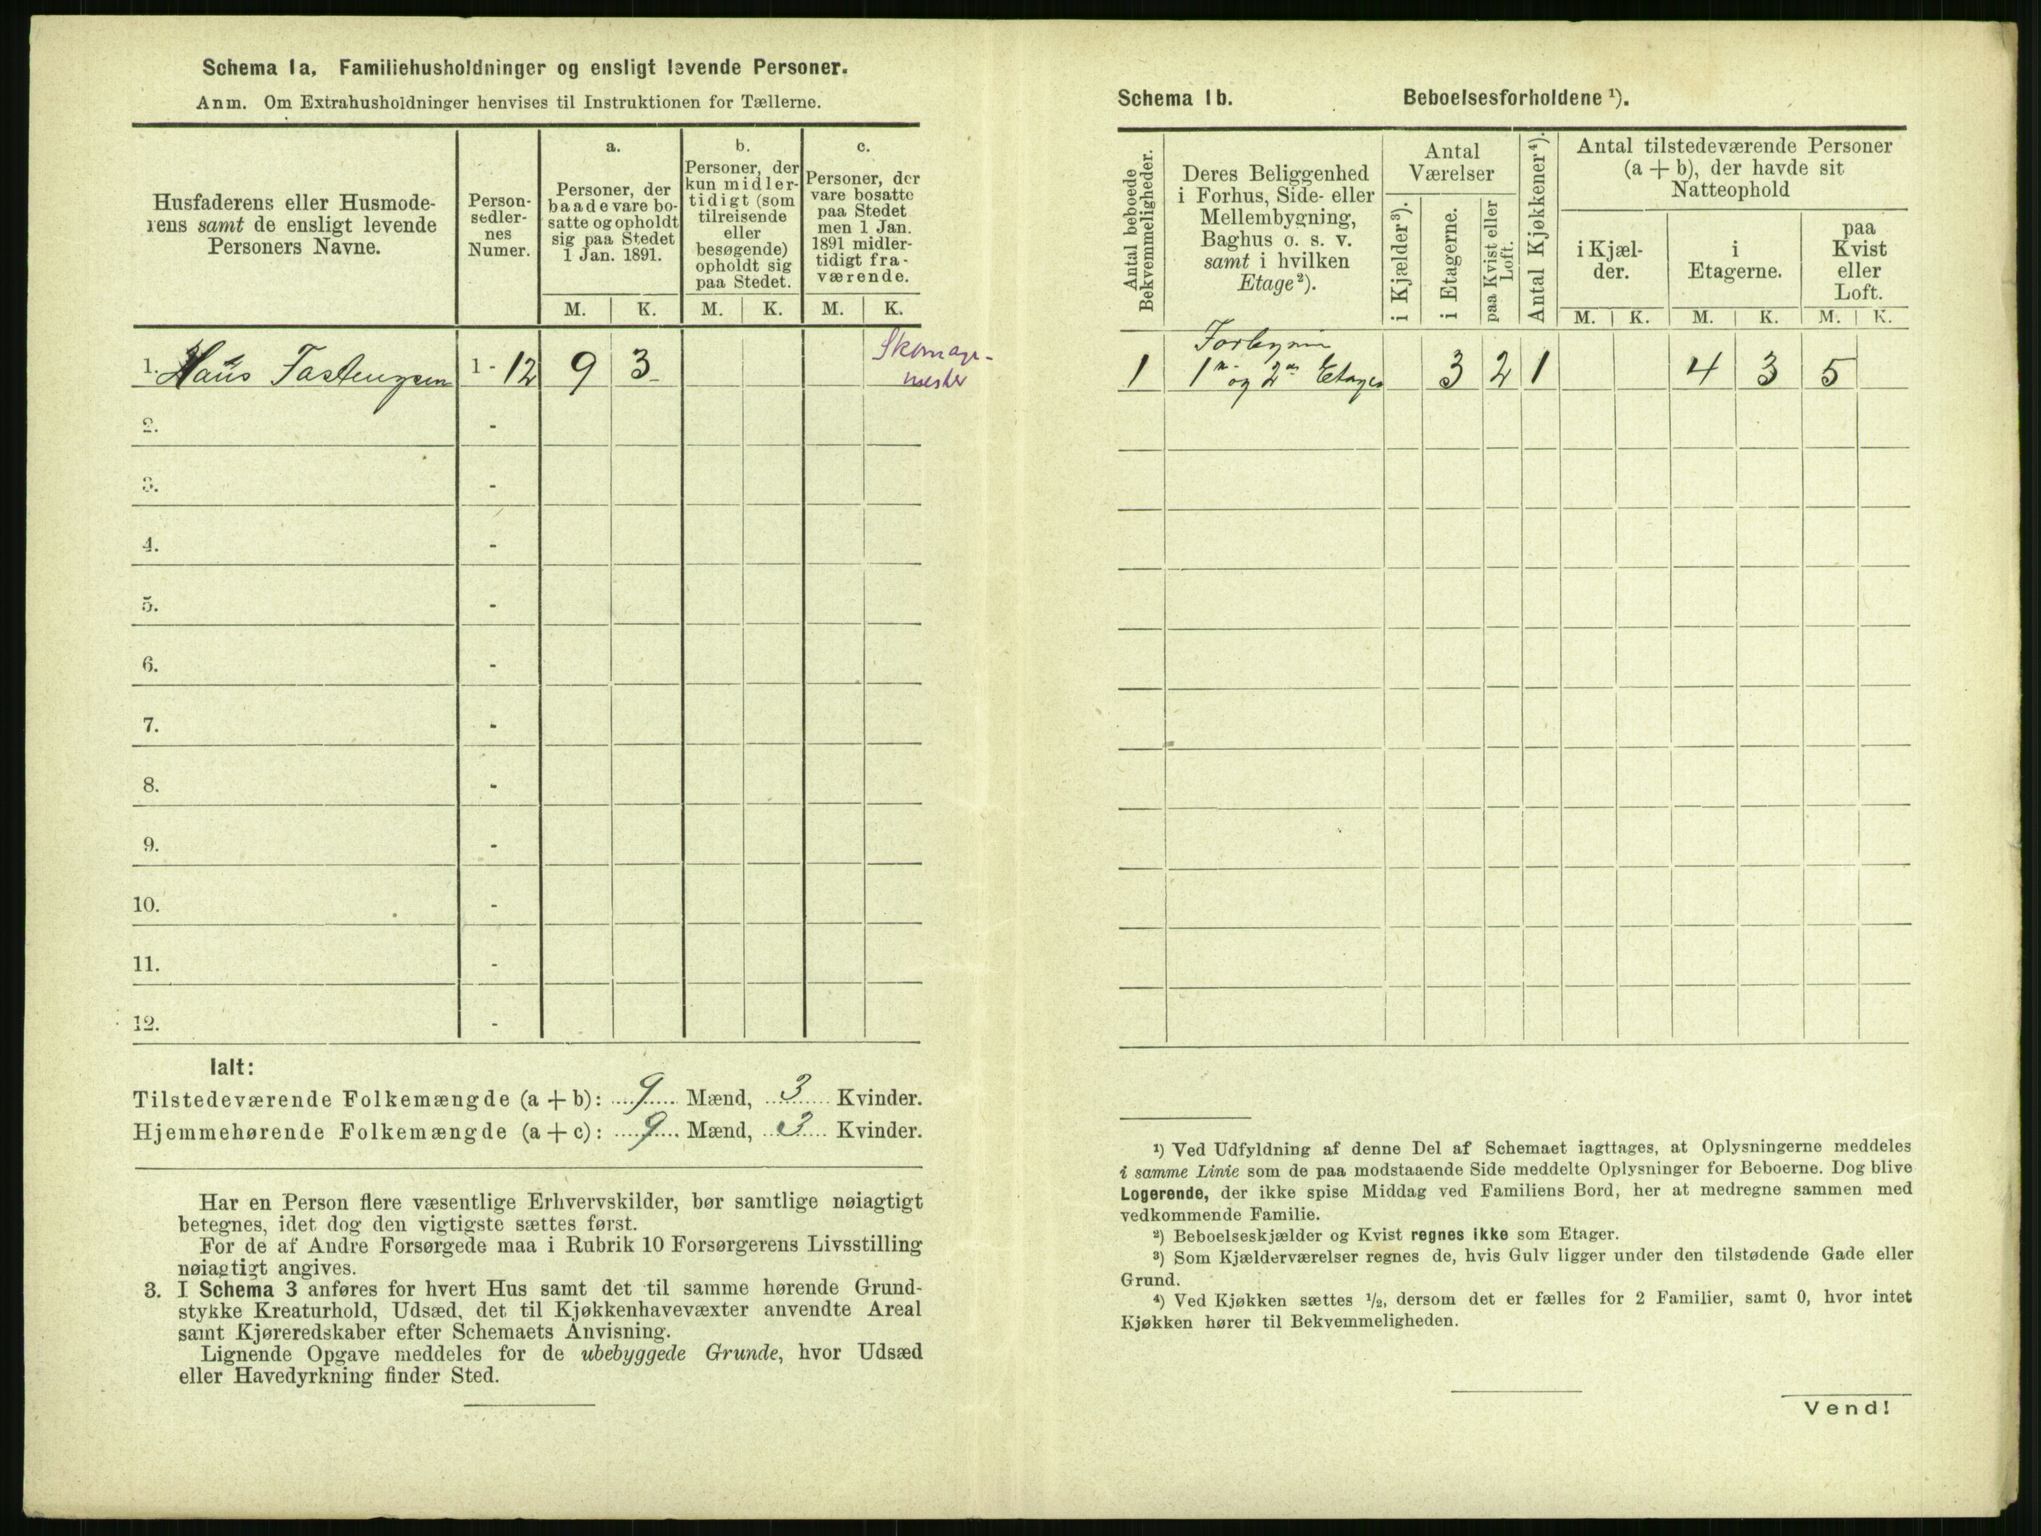 Schema 1a. Familiehusholdninger og ensligt levende Personer.
Anm. Om Extrahusholdninger henvises til Instruktionen for Tællerne.
Husfaderens eller Husmode-
rens samt de ensligt levende
Personers Navne.
Person-
sedler-
nes
Numer.
a.
Personer, der
baade vare bo-
satte og opholdt
sig paa Stedet
1 Jan. 1891.
b.
Personer, der
kun midler-
tidigt (som
tilreisende
eller
besøgende)
opholdt sig
paa Stedet.
c.
Personer, der
vare bosatte
paa Stedet
men 1 Jan.
1891 midler-
tidigt fra-
værende.
M. K. M. K. M. K.
1. Hans 1 - 12 9 3 Skomager-
mester
2. -
3. -
4. -
5. -
6. -
7. -
8. -
9. -
10. -
11. -
12. -
Ialt:
Tilstedeværende Folkemængde (a + b): 9 Mænd, 3 Kvinder.
Hjemmehørende Folkemængde (a + c): 9 Mænd, 3 Kvinder.
Har en Person flere væsentlige Erhvervskilder, bør samtlige nøiagtigt
betegnes, idet dog den vigtigste sættes først.
For de af Andre Forsørgede maa i Rubrik 10 Forsørgerens Livsstilling
nøiagtigt angives.
3. I Schema 3 anføres for hvert Hus samt det til samme hørende Grund-
stykke Kreaturhold, Udsæd, det til Kjøkkenhavevæxter anvendte Areal
samt Kjøreredskaber efter Schemaets Anvisning.
Lignende Opgave meddeles for de ubebyggede Grunde, hvor Udsæd
eller Havedyrkning finder Sted.
Schema 1b. Beboelsesforholdene ¹).
Antal beboede
Bekvemmeligheder.
Deres Beliggenhed
i Forhus, Side- eller
Mellembygning,
Baghus o. s. v.
samt i hvilken
Etage²).
Antal
Værelser
i Kjælder³).
i Etagerne.
paa Kvist eller
Loft.
Antal Kjøkkener⁴).
Antal tilstedeværende Personer
(a + b), der havde sit
Natteophold
i Kjæl-
der.
i
Etagerne.
paa
Kvist
eller
Loft.
M. K. M. K. M. K.
1 1 og 2 Etager 3 2 1 4 3 5
¹) Ved Udfyldning af denne Del af Schemaet iagttages, at Oplysningerne meddeles
i samme Linie som de paa modstaaende Side meddelte Oplysninger for Beboerne. Dog blive
Logerende, der ikke spise Middag ved Familiens Bord, her at medregne sammen med
vedkommende Familie.
²) Beboelseskjælder og Kvist regnes ikke som Etager.
³) Som Kjælderværelser regnes de, hvis Gulv ligger under den tilstødende Gade eller
Grund.
⁴) Ved Kjøkken sættes ½, dersom det er fælles for 2 Familier, samt 0, hvor intet
Kjøkken hører til Bekvemmeligheden.
Vend!